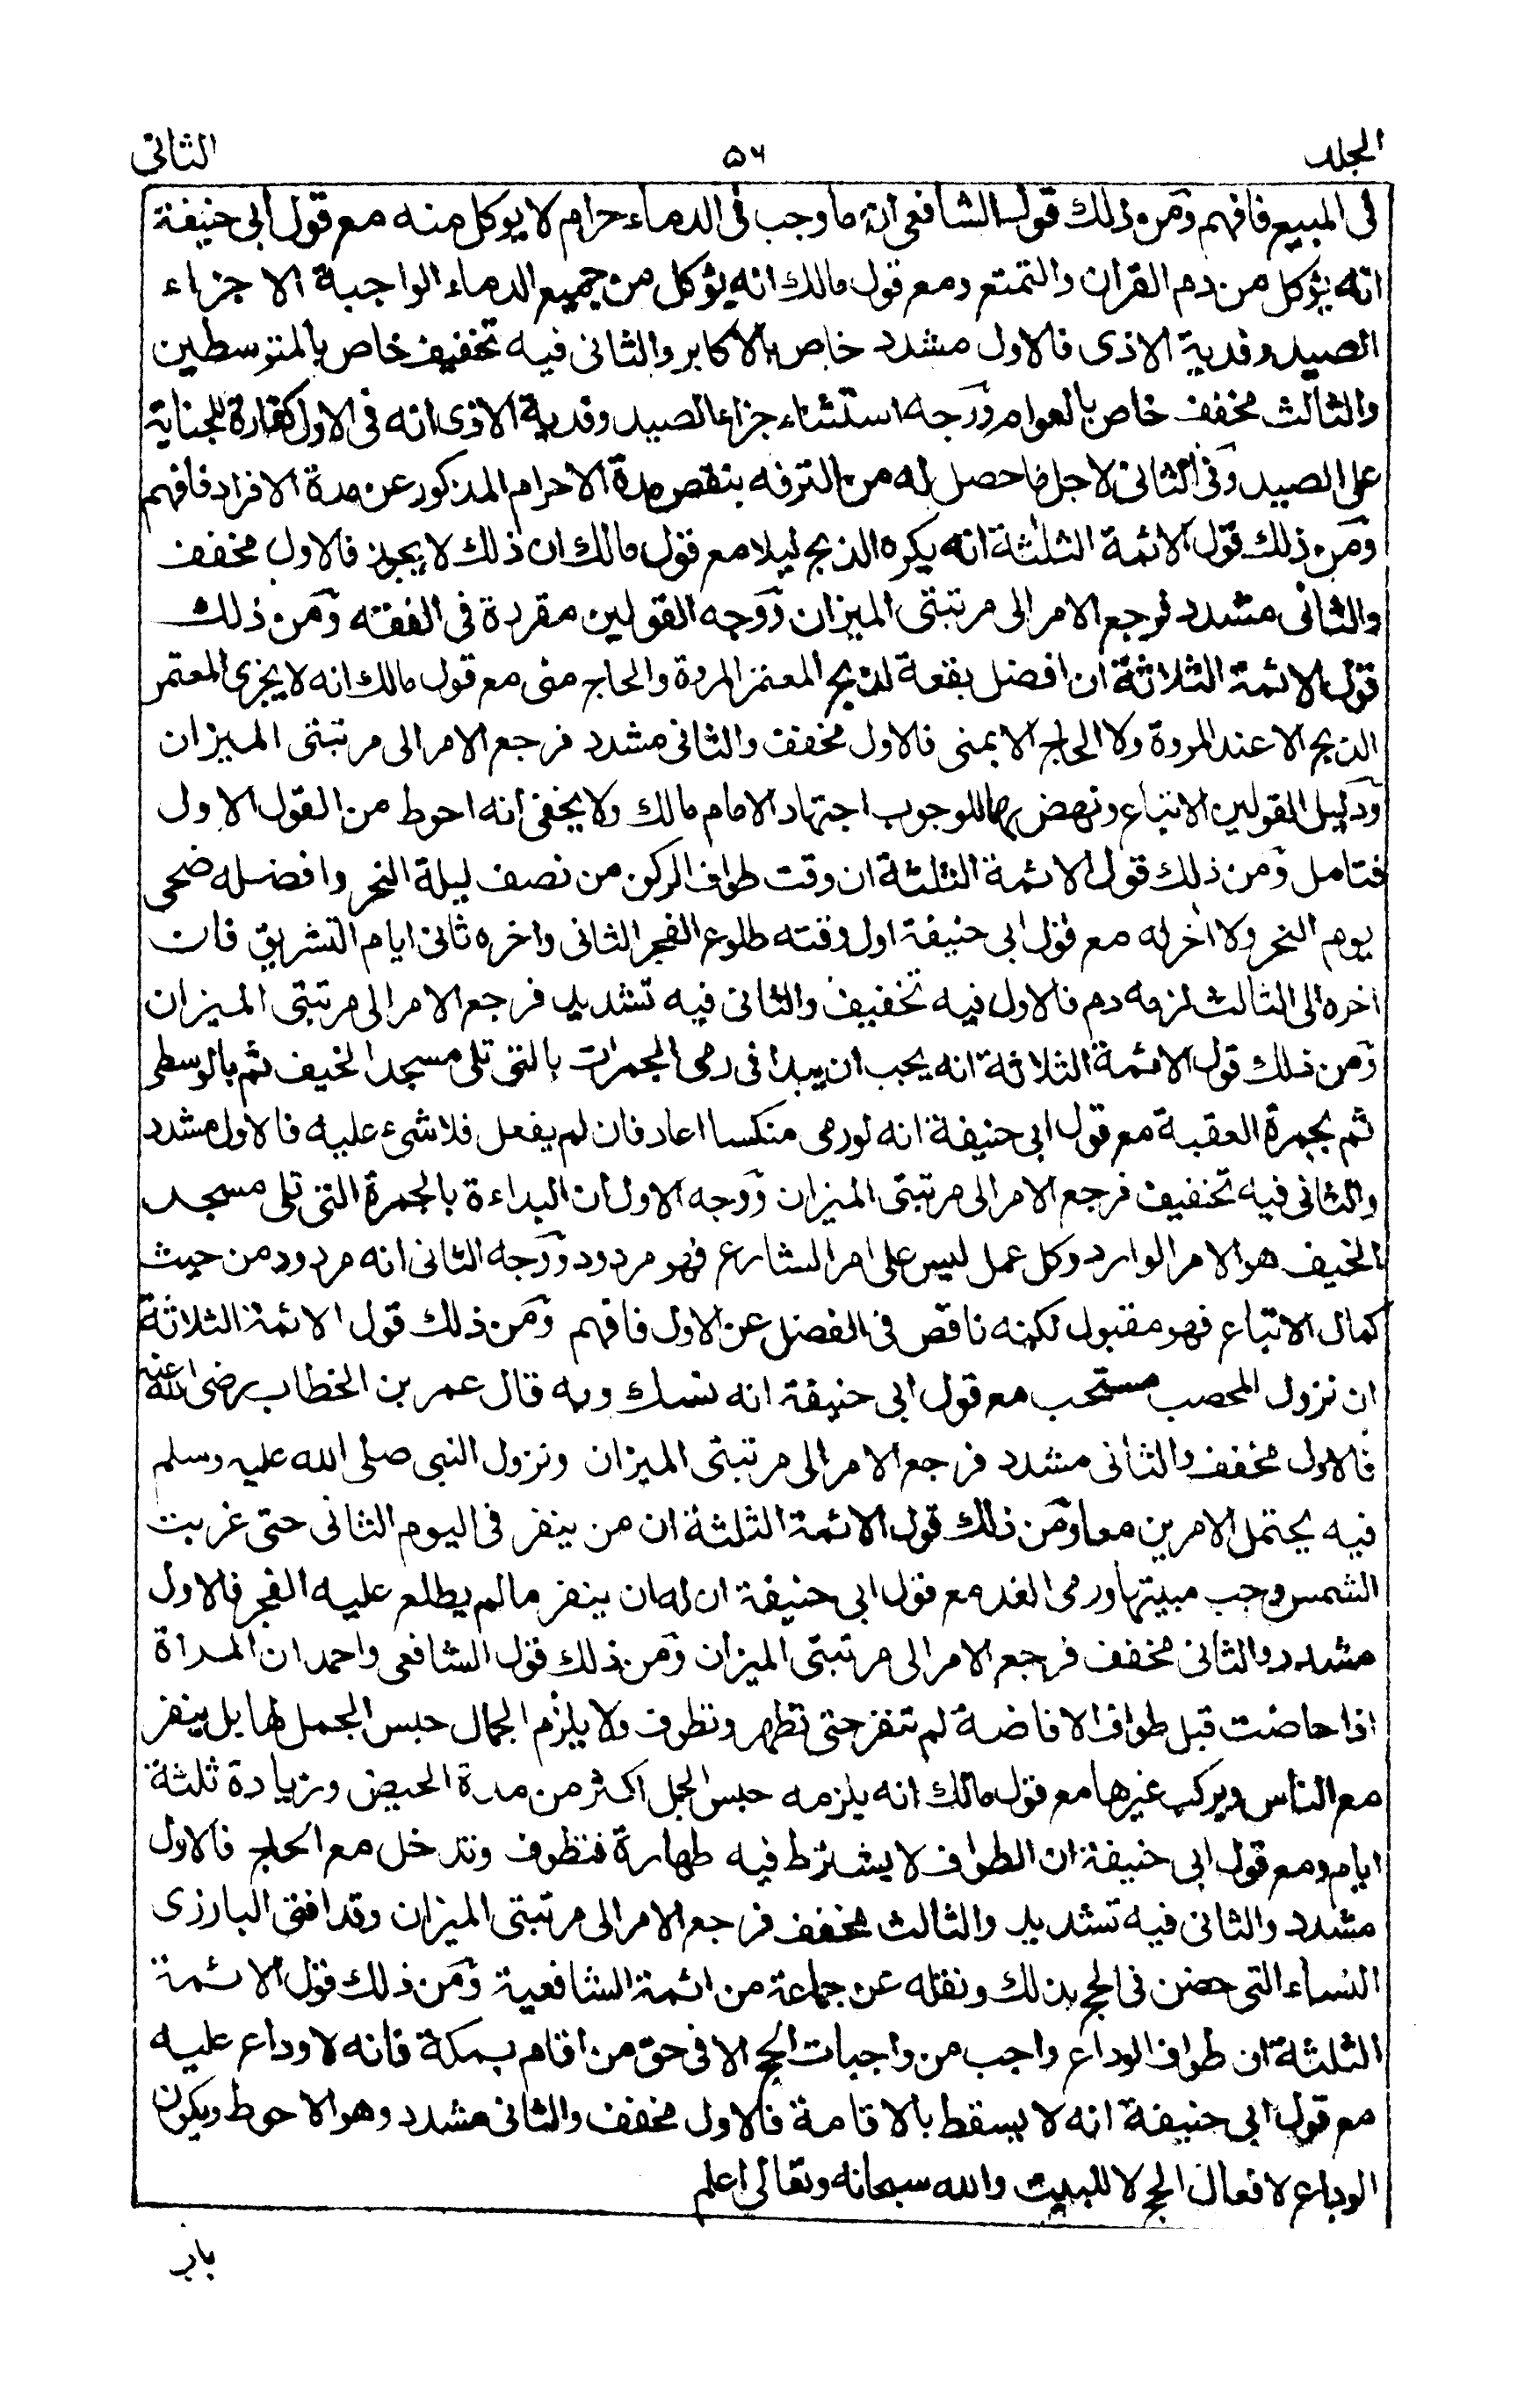 الجلد ۵۶ الثانی
فی المبیع فافهم ومن ذلك قول الشافعی ان ما وجب فی الدماء حرام لا یوكل منه مع قول ابی حنیفة
انه یؤكل من دم القران والتمتع ومع قول مالك انه یؤكل من جمیع الدماء الواجبة الا جزاء
الصید وفدیة الاذی فالاول مشدد خاص بالاكابر والثانی فیه تخفیف خاص بالمتوسطین
والثالث مخفف خاص بالعوام ووجه استثناء جزاء الصید وفدیة الاذی انه فی الاول كفارة للجنایة
علی الصید وفی الثانی لاجل ما حصل له من الترفه بنقص مدة الاحرام المذكور عن مدة الافراد فافهم
ومن ذلك قول الائمة الثلثة انه یكره الذبح لیلا مع قول مالك ان ذلك لا یجوز فالاول مخفف
والثانی مشدد فرجع الامر الی مرتبتی المیزان ووجه القولین مقررة فی الفقه ومن ذلك
قول الائمة الثلاثة ان افضل بقعة لذبح المعتمر المروة والحاج منی مع قول مالك انه لا یجزی المعتمر
الذبح الا عند المروة ولا الحاج الا بمنی فالاول مخفف والثانی مشدد فرجع الامر الی مرتبتی المیزان
ودلیل القولین الاتباع ونهض بهما للوجوب اجتهاد الامام مالك ولا یخفی انه احوط من القول الاول
فتامل ومن ذلك قول الائمة الثلثة ان وقت طواف الركن من نصف لیلة النحر وافضله ضحی
یوم النحر ولا اخر له مع قول ابی حنیفة اول وقته طلوع الفجر الثانی واخره ثانی ایام التشریق فان
اخره الی الثالث لزمه دم فالاول فیه تخفیف والثانی فیه تشدید فرجع الامر الی مرتبتی المیزان
ومن ذلك قول الائمة الثلاثة انه یجب ان یبدا فی رمی الجمرات بالتی تلی مسجد الخیف ثم بالوسطی
ثم بجمرة العقبة مع قول ابی حنیفة انه لو رمی منكسا اعاد فان لم یفعل فلا شیء علیه فالاول مشدد
والثانی فیه تخفیف فرجع الامر الی مرتبتی المیزان ووجه الاول ان البداءة بالجمرة التی تلی مسجد
الخیف هو الامر الوارد وكل عمل لیس علی امر الشارع فهو مردود ووجه الثانی انه مردود من حیث
كمال الاتباع فهو مقبول لكنه ناقص فی الفضل عن الاول فافهم ومن ذلك قول الائمة الثلاثة
ان نزول المحصب مستحب مع قول ابی حنیفة انه نسك وبه قال عمر بن الخطاب رضی الله عنه
فالاول مخفف والثانی مشدد فرجع الامر الی مرتبتی المیزان ونزول النبی صلی الله علیه وسلم
فیه یحتمل الامرین معا ومن ذلك قول الائمة الثلثة ان من ینفر فی الیوم الثانی حتی غربت
الشمس وجب مبیتها ورمی الغد مع قول ابی حنیفة ان له ان ینفر مالم یطلع علیه الفجر فالاول
مشدد والثانی مخفف فرجع الامر الی مرتبتی المیزان ومن ذلك قول الشافعی واحمد ان المراة
اذا حاضت قبل طواف الافاضة لم تنفر حتی تطهر وتطوف ولا یلزم الجمال حبس الجمل لها بل ینفر
مع الناس ویركب غیرها مع قول مالك انه یلزمه حبس الجمل اكثر من مدة الحیض وزیادة ثلثة
ایام ومع قول ابی حنیفة ان الطواف لا یشترط فیه طهارة فتطوف وتدخل مع الحاج فالاول
مشدد والثانی فیه تشدید والثالث مخفف فرجع الامر الی مرتبتی المیزان وقد افتی البارزی
النساء التی حضن فی الحج بذلك ونقله عن جماعة من ائمة الشافعیة ومن ذلك قول الائمة
الثلثة ان طواف الوداع واجب من واجبات الحج الا فی حق من اقام بمكة فانه لا وداع علیه
مع قول ابی حنیفة انه لا یسقط بالاقامة فالاول مخفف والثانی مشدد وهو الاحوط ویكون
الوداع لافعال الحج لا للبیت والله سبحانه وتعالی اعلم
باب